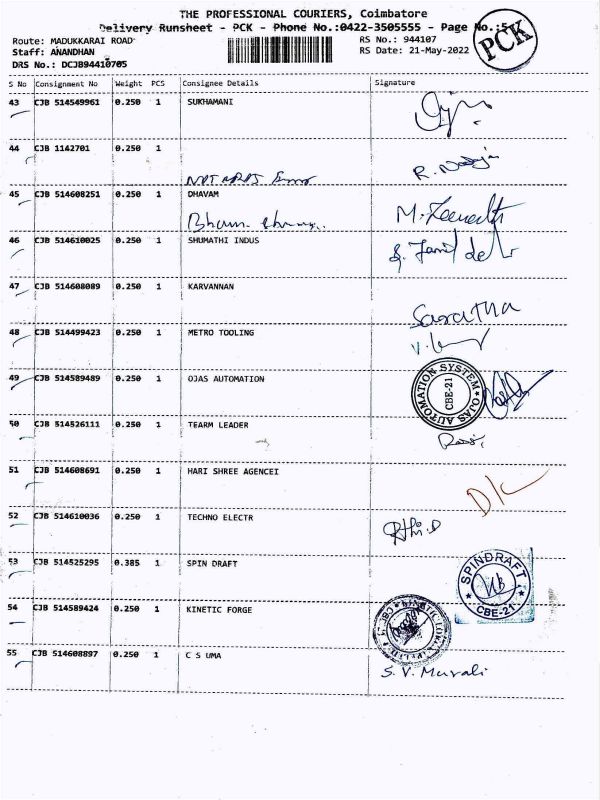 THE PROFESSIONAL COURIERS, Coimbatore
Delivery Runsheet - PCK - Phone No.:0422-3505555 - Page No.:5
Route: MADUKKARAI ROAD
RS No.: 944107
Staff: ANANDHAN
RS Date: 21-May-2022
DRS No.: DCJB94410705
PCK
S No Consignment No Weight PCS Consignee Details Signature
43 CJB 514549961 0.250 1 SUKHAMANI
44 CJB 1142701 0.250 1
45 CJB 514608251 0.250 1 DHAVAM
46 CJB 514610025 0.250 1 SHUMATHI INDUS
47 CJB 514608089 0.250 1 KARVANNAN
Saratha
48 CJB 514499423 0.250 1 METRO TOOLING
49 CJB 514589489 0.250 1 OJAS AUTOMATION
OJAS AUTOMATION SYSTEM
CBE-21
50 CJB 514526111 0.250 1 TEARM LEADER
51 CJB 514608691 0.250 1 HARI SHREE AGENCEI
52 CJB 514610036 0.250 1 TECHNO ELECTR
53 CJB 514525295 0.385 1 SPIN DRAFT
SPINDRAFT
CBE-21
54 CJB 514589424 0.250 1 KINETIC FORGE
55 CJB 514608897 0.250 1 C S UMA
S. V. Murali